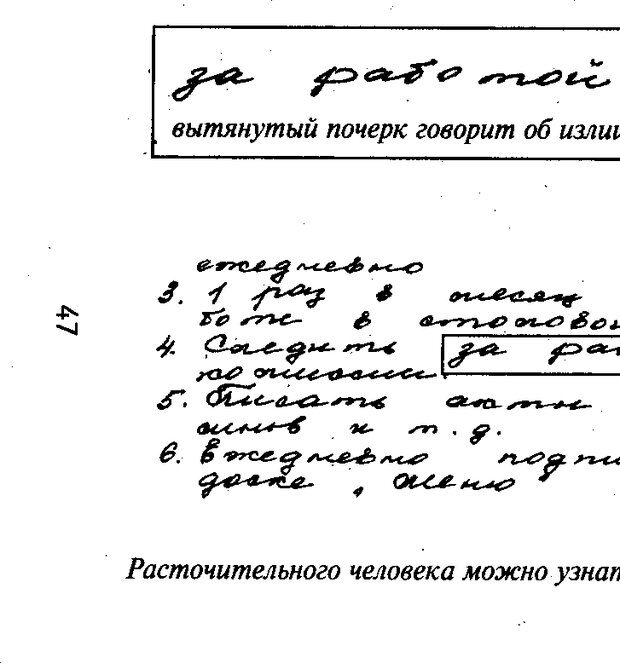 за работой
вытянутый почерк говорит об изли
ежедневно
3. 1 раз в месяц
в столовой
4. Следить за ра
комиссии.
5. Писать акты
и т.д.
6. Ежедневно подпи
доске, меню
47
Расточительного человека можно узнат